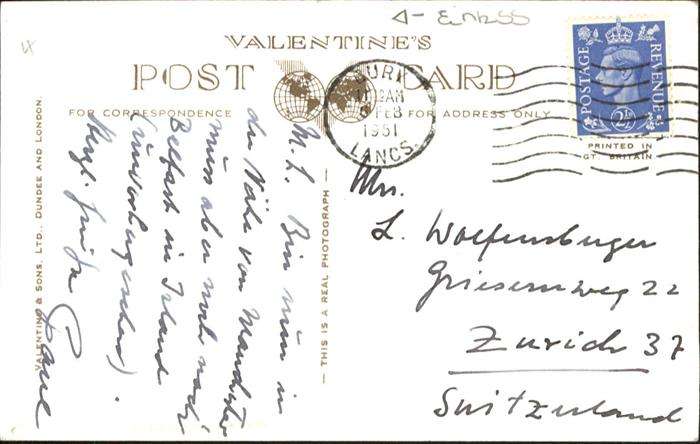 VALENTINE'S
POST CARD
FOR CORRESPONDENCE
FOR ADDRESS ONLY
BURY
AM
FEB
1951
LANCS.
POSTAGE
REVENUE
2½
PRINTED IN
GT. BRITAIN
VALENTINE & SONS, LTD., DUNDEE AND LONDON.
THIS IS A REAL PHOTOGRAPH
M. L. Bin nun in
der Nähe von Manchester
muss aber noch nach
Belfast in Irland
Herzl. Grüsse
Mrs.
L. Wolfensberger
Griesernweg 22
Zurich 37
Switzerland